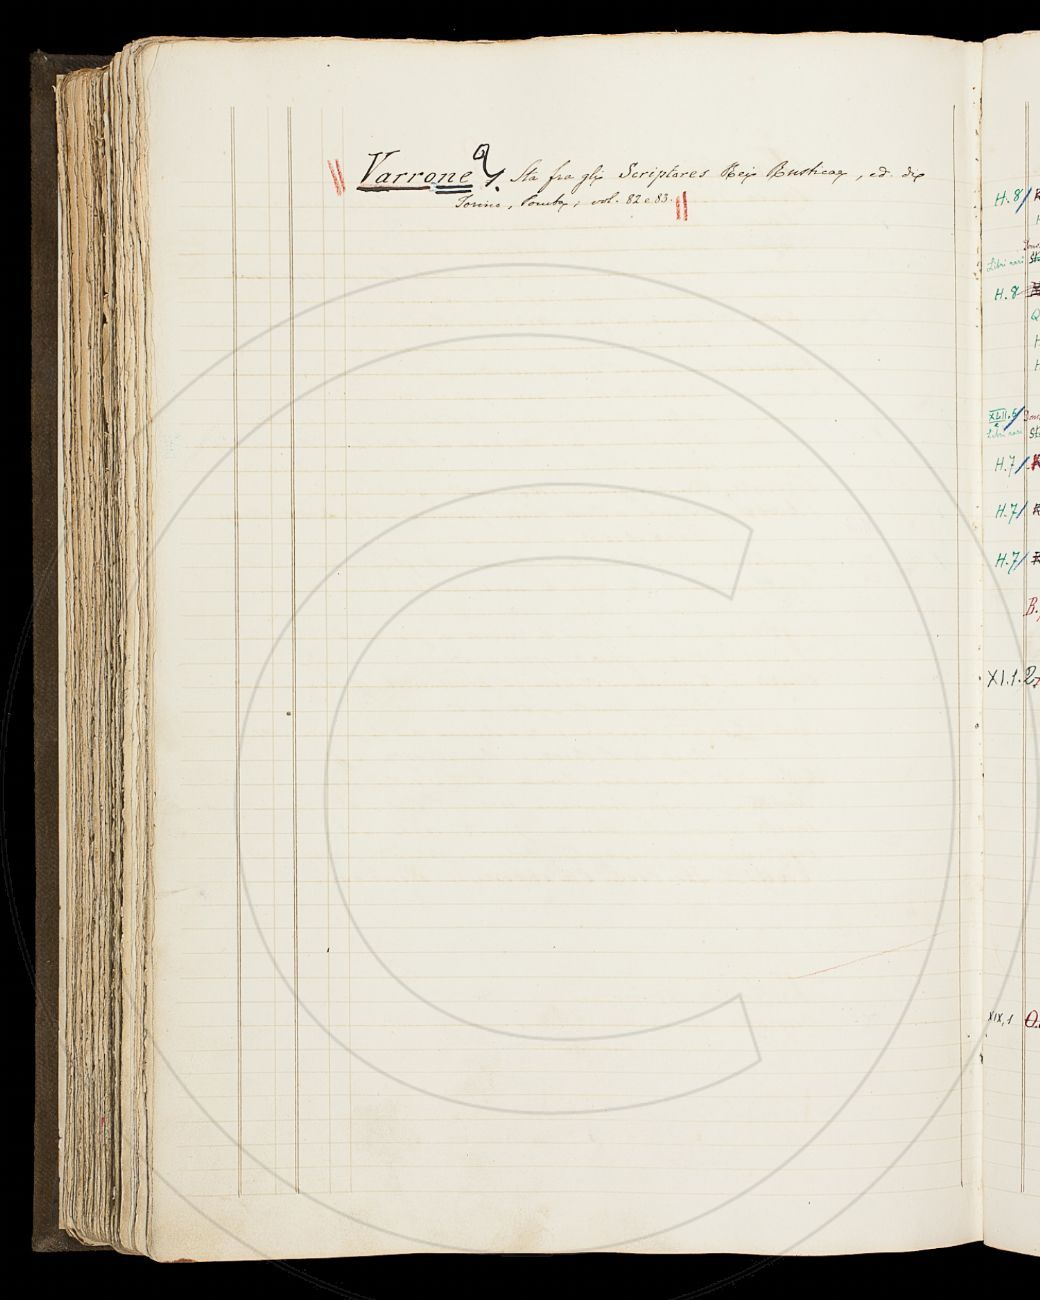 Varrone
Sta fra gli Scriptores Rei Rusticae, ed. di
Torino, Pomba, vol. 82 e 83.
H. 8/
Libri rari
H. 8
XLII.
Libri rari
H. 7/
H. 7/
H. 7/
B.
XI. 1. 2
XIX, 1